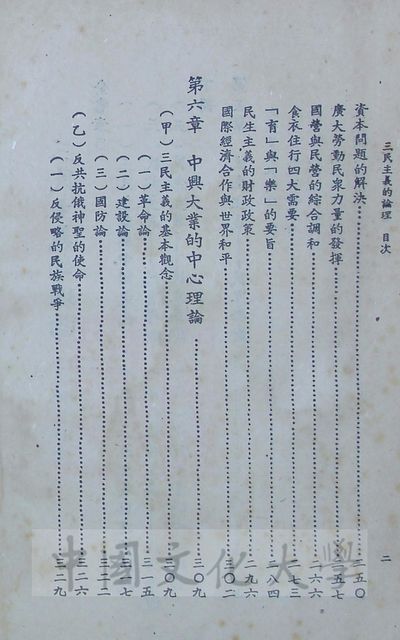 三民主義的論理　目次　二
資本問題的解決……二五〇
廣大勞動民衆力量的發揮……二五七
國營與民營的綜合調和……二六六
食衣住行四大需要……二七三
「育」與「樂」的要旨……二八四
民生主義的財政政策……二九六
國際經濟合作與世界和平……三〇二
第六章　中興大業的中心理論……三〇九
（甲）三民主義的基本觀念……三〇九
（一）革命論……三一五
（二）建設論……三一七
（三）國防論……三二二
（乙）反共抗俄神聖的使命……三二六
（一）反侵略的民族戰爭……三二九
中國文化大學